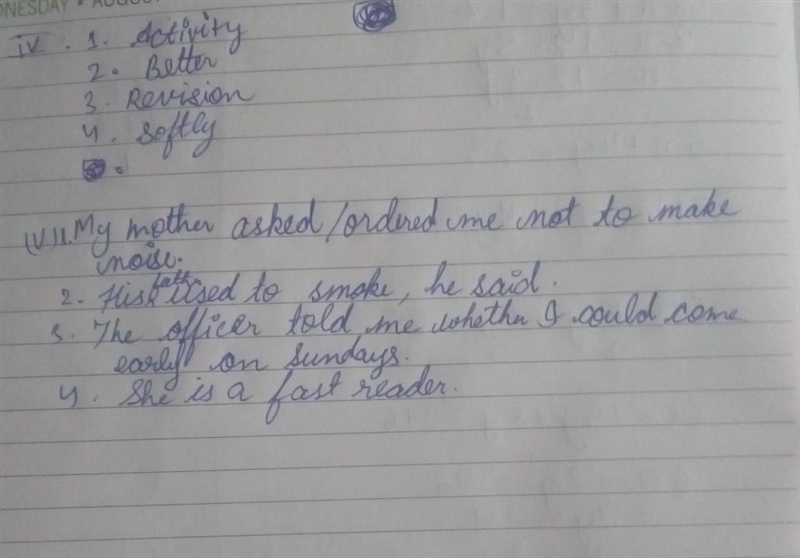 NESDAY • AUGUS
iv. 1. Activity
2. Better
3. Revision
4. Softly
(V) 1. My mother asked/ordered me not to make
noise.
father
2. His used to smoke, he said.
3. The officer told me whether I could come
early on Sundays.
4. She is a fast reader.